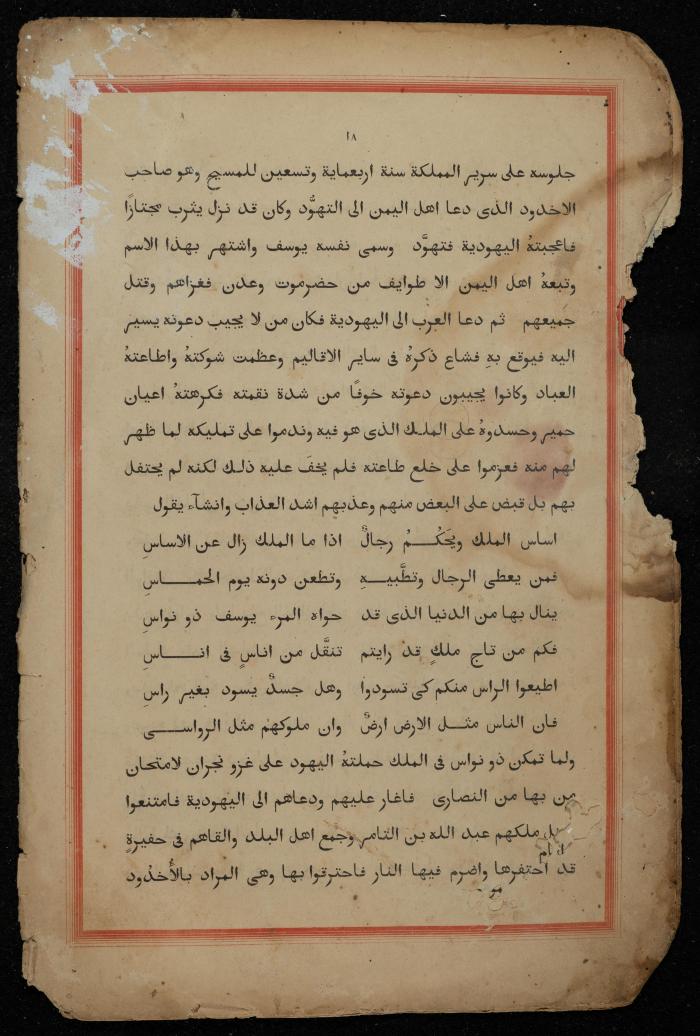 ١٨
جلوسه على سرير المملكة سنة اربعماية وتسعين للمسيح وهو صاحب
الاخدود الذى دعا اهل اليمن الى التهوُّد وكان قد نزل يثرب مجتازًا
فاعجبتهُ اليهودية فتهوَّد وسمى نفسه يوسف واشتهر بهذا الاسم
وتبعهُ اهل اليمن الا طوايف من حضرموت وعدن فغزاهم وقتل
جميعهم ثم دعا العرب الى اليهودية فكان من لا يجيب دعوته يسير
اليه فيوقع بهِ فشاع ذكرهُ فى ساير الاقاليم وعظمت شوكتهُ واطاعتهُ
العباد وكانوا يجيبون دعوته خوفًا من شدة نقمته فكرهتهُ اعيان
حمير وحسدوهُ على الملك الذى هو فيه وندموا على تمليكه لما ظهر
لهم منه فعزموا على خلع طاعته فلم يخفَ عليه ذلك لكنه لم يحتفل
بهم بل قبض على البعض منهم وعذبهم اشد العذاب وانشآء يقول
اساس الملك ويَحَكُــمُ رجالٌ اذا ما الملك زال عن الاساسِ
فمن يعطى الرجال وتطَّبيــهِ وتطعن دونه يوم الحمـــاسِ
ينال بها من الدنيا الذى قد حواه المرء يوسف ذو نواسِ
فكم من تاج ملكٍ قد رايتم تنقَّل من اناسٍ فى انــــاسِ
اطيعوا الراس منكم كى تسودوا وهل جسدٌ يسود بغير راسِ
فان الناس مثــل الارض ارضٌ وان ملوكهم مثل الرواســى
ولما تمكن ذو نواس فى الملك حملتهُ اليهود على غزو نجران لامتحان
من بها من النصارى فاغار عليهم ودعاهم الى اليهودية فامتنعوا
ملكهم عبد الله بن الثامر وجمع اهل البلد والقاهم فى حفيرةٍ
قد احتفرها واضرم فيها النار فاحترقوا بها وهى المراد بالأُخدُود